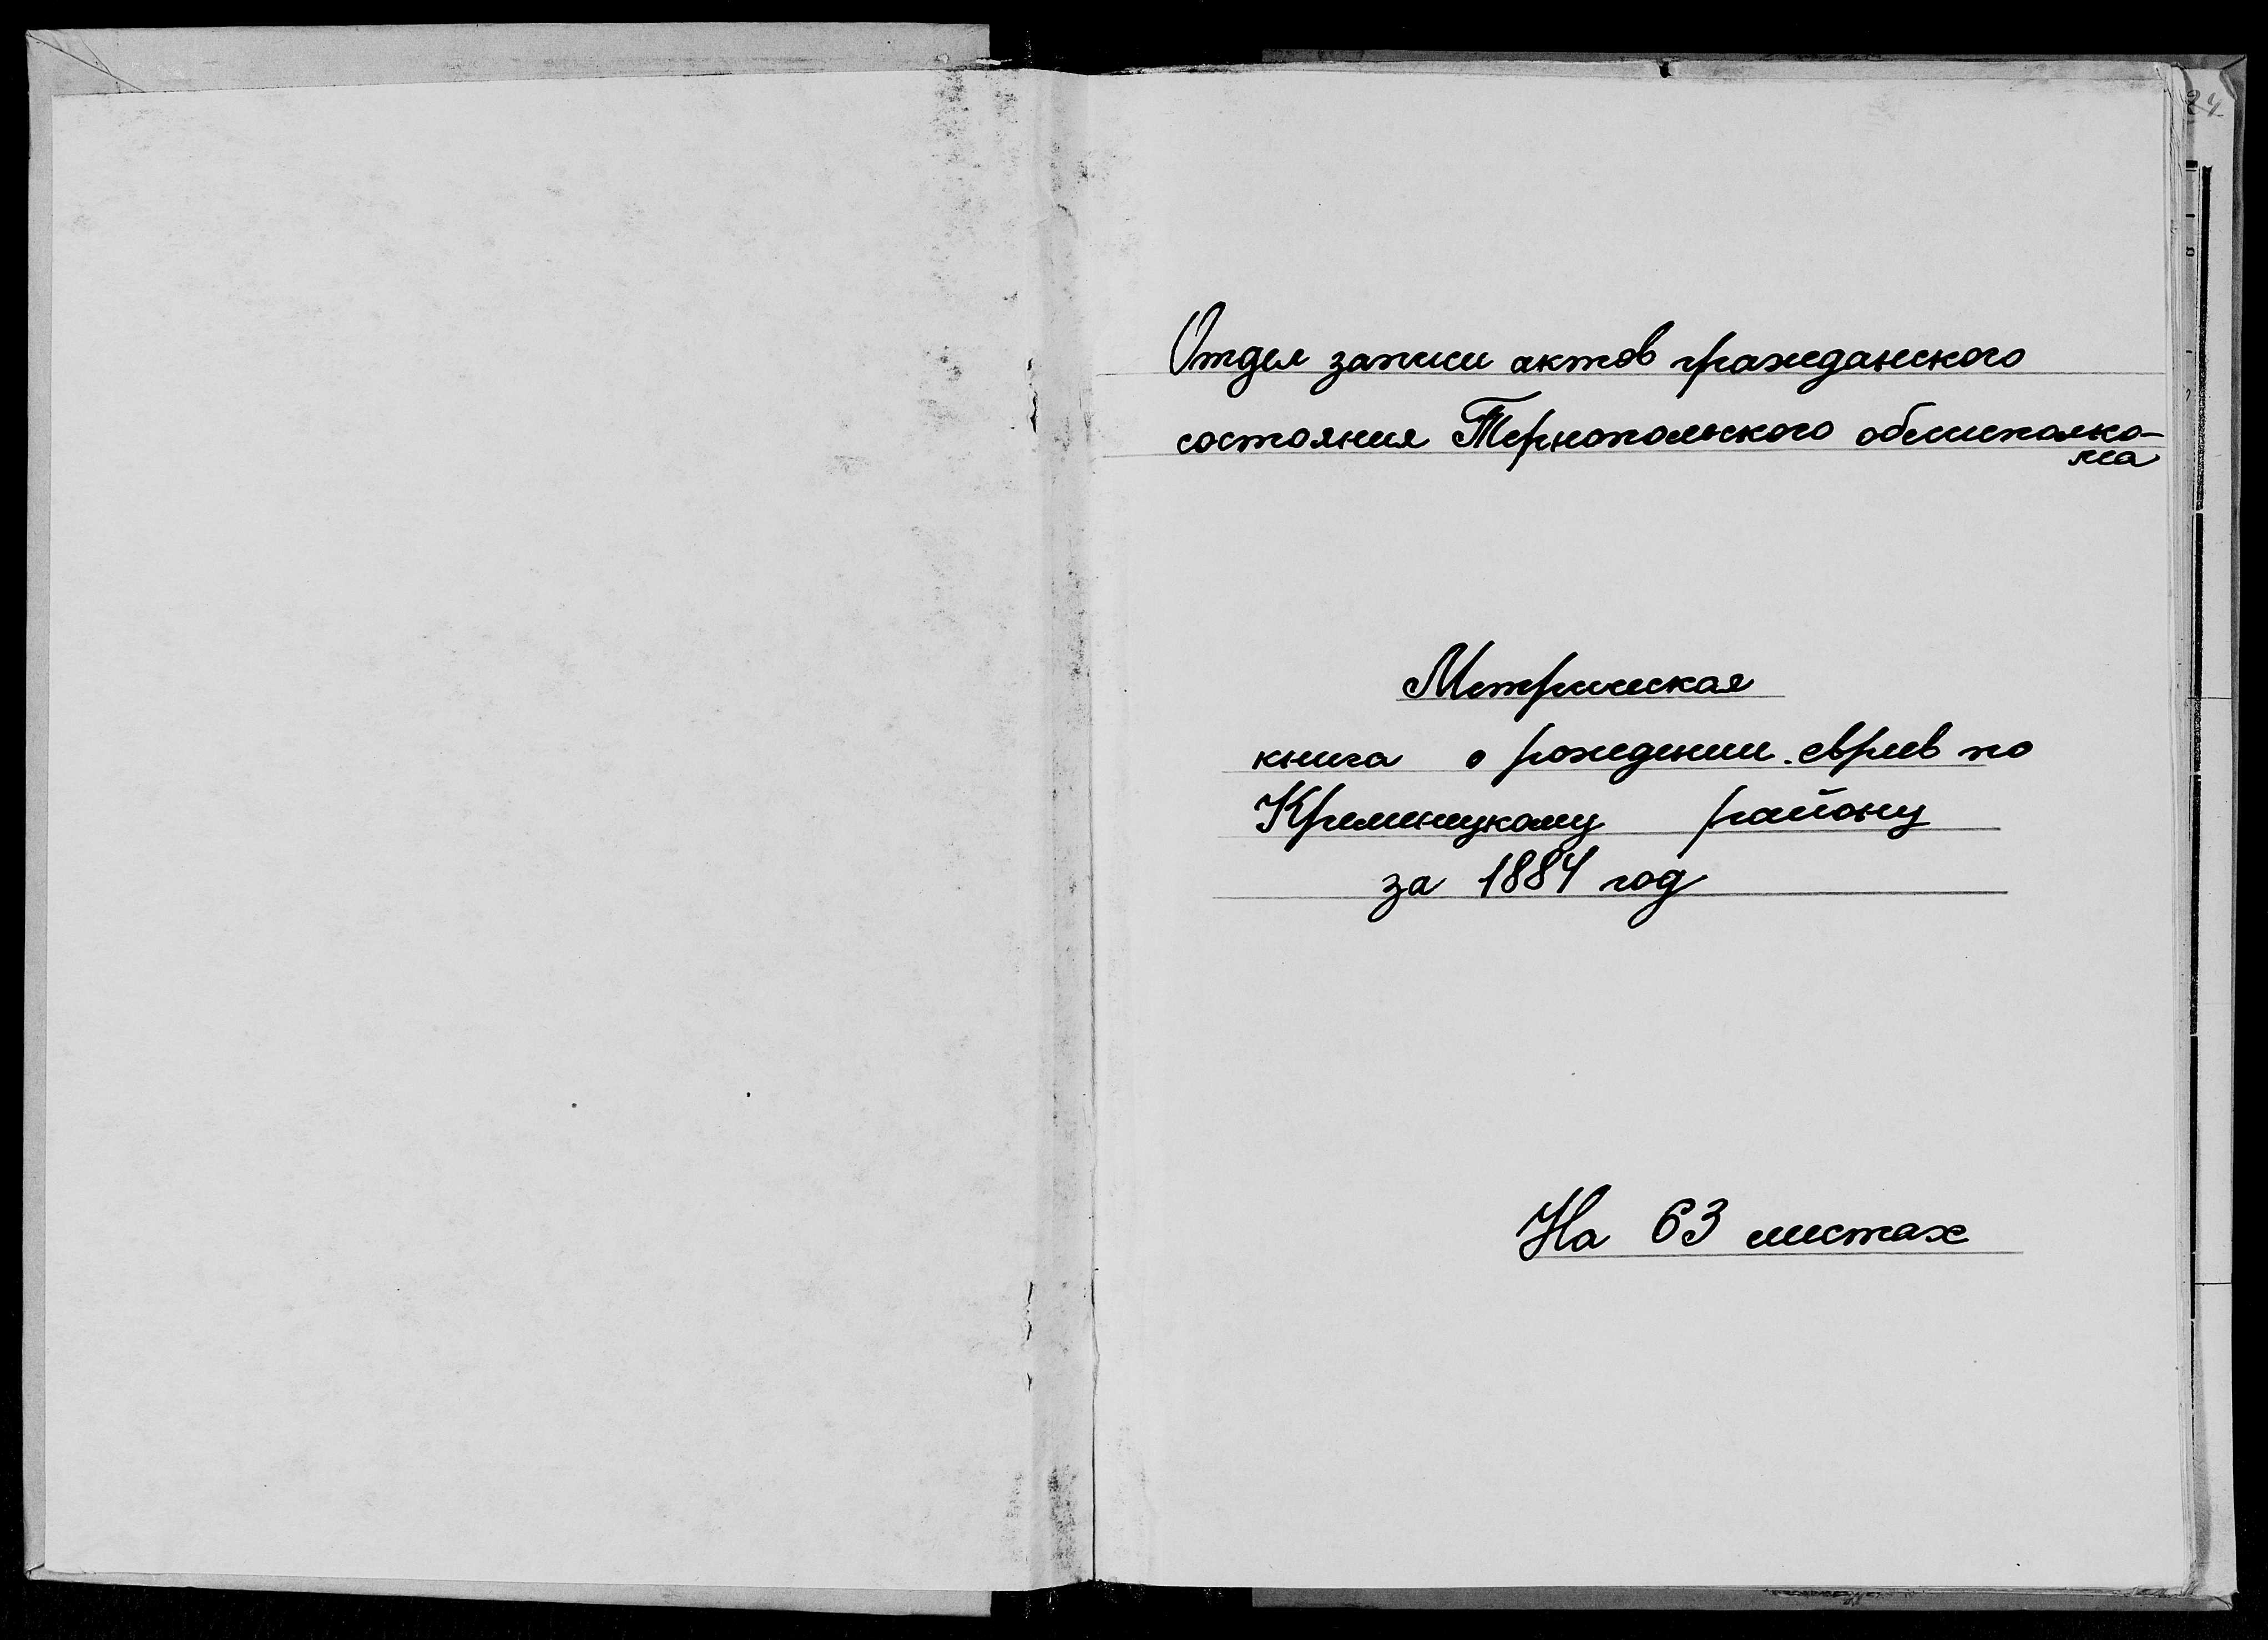 Отдел записи актов гражданского
состояния Тернопольского облисполко-
ма
Метрическая
книга о рождении евреев по
Кременецкому району
за 1884 год
На 63 листах
24